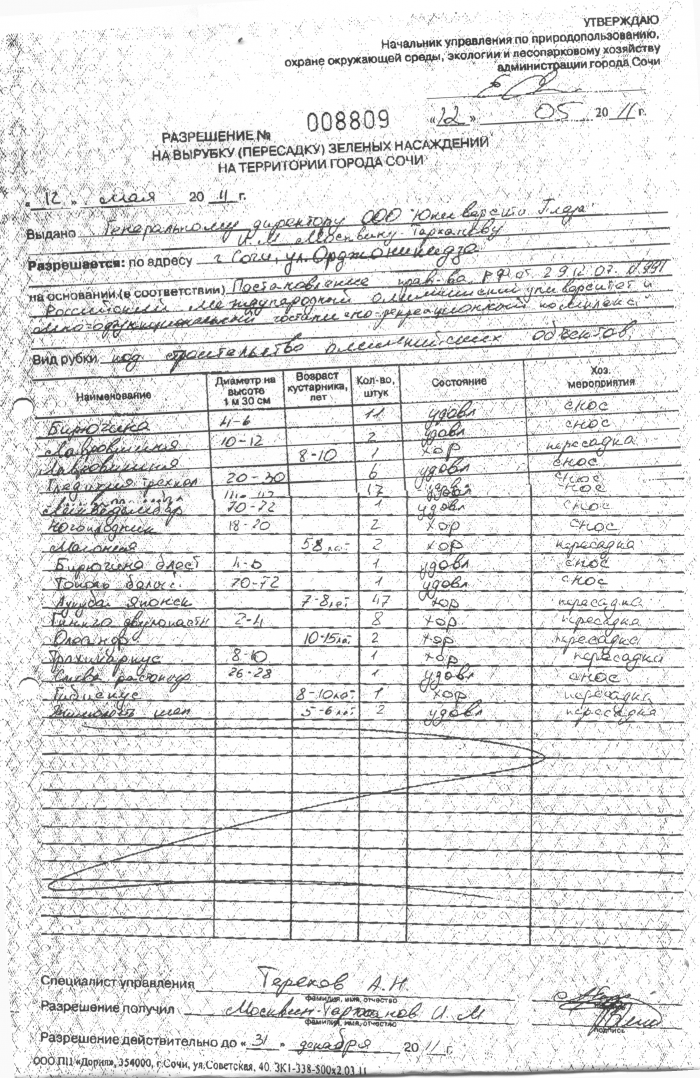 УТВЕРЖДАЮ
Начальник управления по природопользованию,
охране окружающей среды, экологии и лесопарковому хозяйству
администрации города Сочи
«12» 05 2011 г.
РАЗРЕШЕНИЕ № 008809
НА ВЫРУБКУ (ПЕРЕСАДКУ) ЗЕЛЕНЫХ НАСАЖДЕНИЙ
НА ТЕРРИТОРИИ ГОРОДА СОЧИ
«12» мая 2011 г.
Выдано Генеральному директору ООО "Юниверсити Плаза"
И.М Москвину-Тарханову
Разрешается: по адресу г Сочи, ул. Орджоникидзе
на основании (в соответствии) Постановление прав-ва РФ от 29.12.07. №991
Российский Международный олимпийский университет и
гостинично-рекреационный комплекс
Вид рубки под строительство олимпийских объектов
Наименование Диаметр на высоте 1 м 30 см Возраст кустарника, лет Кол-во, штук Состояние Хоз. мероприятия
Бирючина 4-6 11 удовл снос
Лавровишня 10-12 2 удовл снос
Лавровишня 8-10 1 хор пересадка
Гледичия трехкол 20-30 6 удовл снос
17 удовл снос
70-72 1 удовл снос
18-20 2 хор снос
Магония 5-8 лет 2 хор пересадка
Бирючина блест 4-6 1 удовл снос
Тополь бальз. 70-72 1 удовл снос
Японск 7-8 лет 47 хор пересадка
Гинкго двулопастн 2-4 8 хор пересадка
Олеандр 10-15 лет 2 хор пересадка
Трахикарпус 8-10 1 хор пересадка
Слива растопыр 26-28 1 удовл снос
Гибискус 8-10 лет 1 хор пересадка
Жимолость шап 5-6 лет 2 удовл пересадка
Специалист управления Терехов А.Н.
фамилия, имя, отчество
Разрешение получил Москвин-Тарханов И.М
фамилия, имя, отчество
подпись
Разрешение действительно до «31» декабря 2011 г.
ООО ПЦ «Дория», 354000, г.Сочи, ул.Советская, 40. ЗК1-338-500х2.03.11